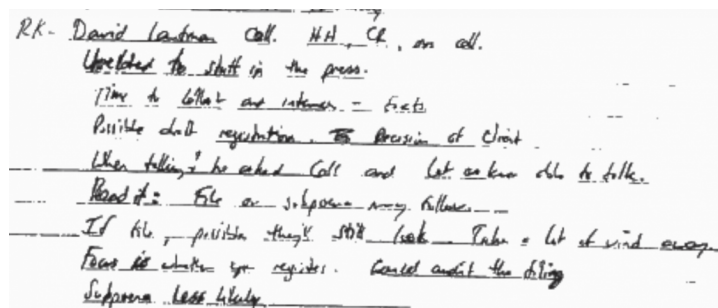 RK- David Laufman call. HH, CR, on call.
Unrelated to stuff in the press.
Time to collect and internet - facts
Possible draft registration. Decision of client
When talking, he asked call and let us know able to talk.
File or subpoena may follow.
If file, possible they'll still look. Take a lot of wind away
Focus is whether you register. Could audit the filing
Subpoena less likely